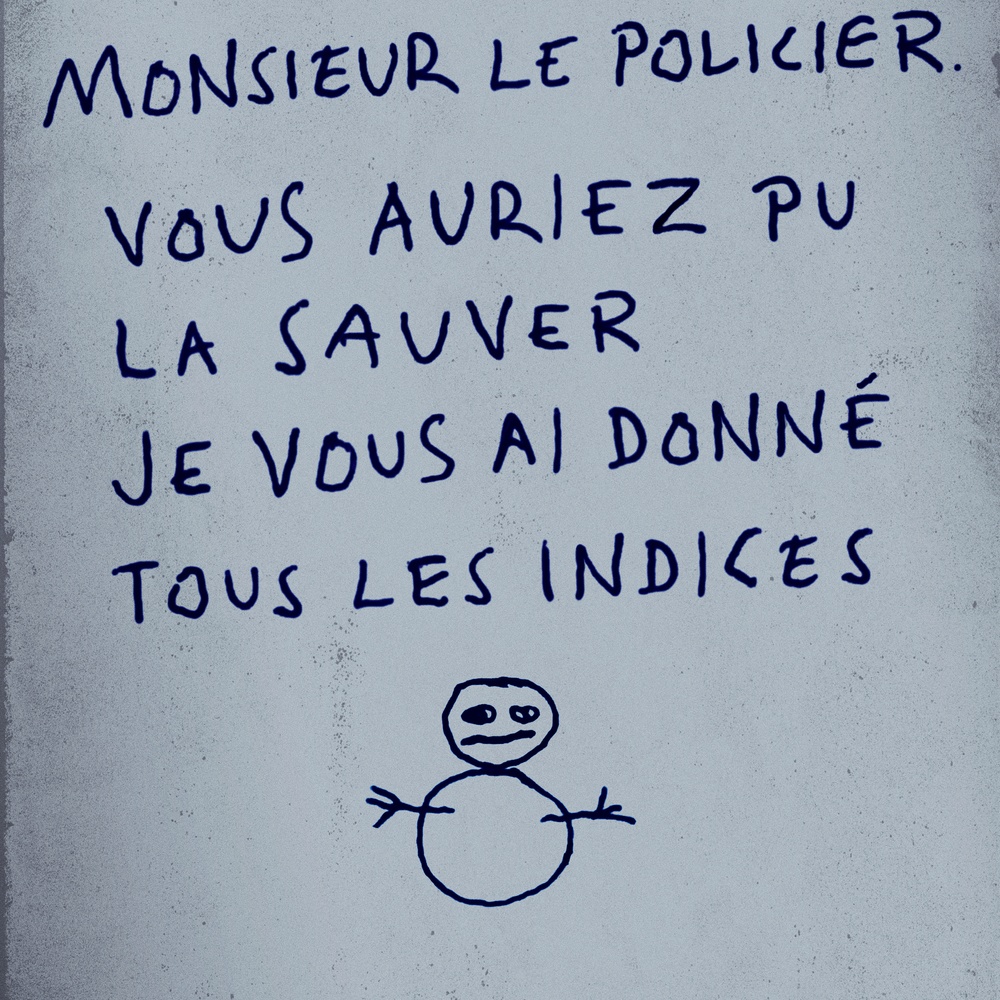 MONSIEUR LE POLICIER.
VOUS AURIEZ PU
LA SAUVER
JE VOUS AI DONNÉ
TOUS LES INDICES